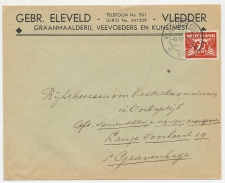 GEBR. ELEVELD - VLEDDER
TELEFOON No. 501
GIRO No. 241309
GRAANMAALDERIJ, VEEVOEDERS EN KUNSTMEST
NEDERLAND
7½
Rijksbureau voor Voedselvoorziening
in Oorlogstijd
Afd.
Lange Voorhout
's Gravenhage